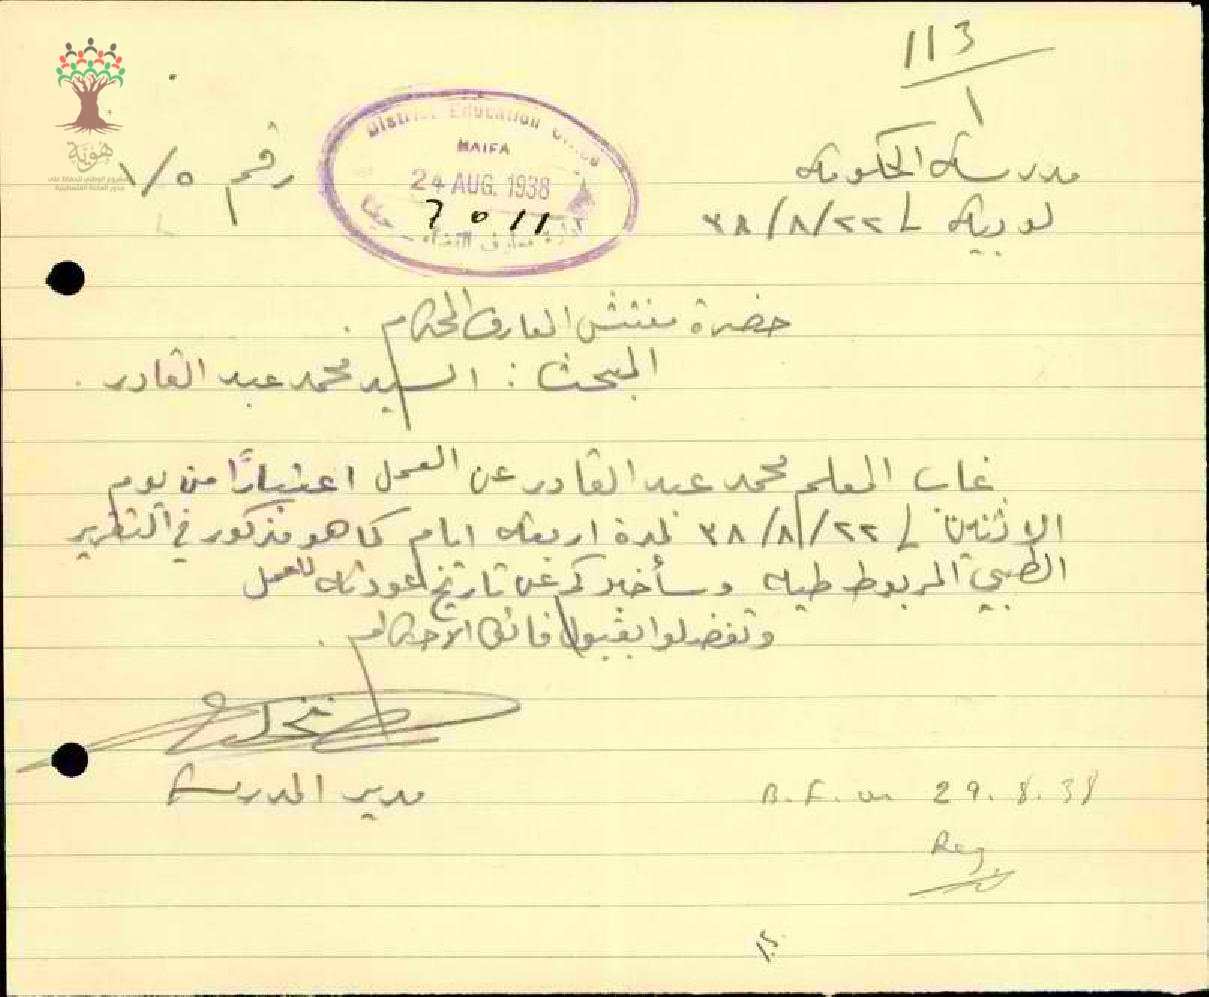 113
1
مدرسة الحكومة
لوبية في ٢٢/٨/٣٨
رقم ١/٥
District Education Office
HAIFA
24 AUG. 1938
7011
حيفا
هوية
المشروع الوطني للحفاظ على
جذور العائلة الفلسطينية
حضرة مفتش المعارف المحترم
المبحث : السيد محمد عبد القادر .
غاب المعلم محمد عبد القادر عن العمل اعتبارًا من يوم
الاثنين في ٢٢/٨/٣٨ لمدة اربعة ايام كما هو مذكور في التقرير
الطبي المربوط طيه وسأخبركم عن تاريخ عودته للعمل
وتفضلوا بقبول فائق الاحترام .
مدير المدرسة
B.F. on 29.8.38
Reg.